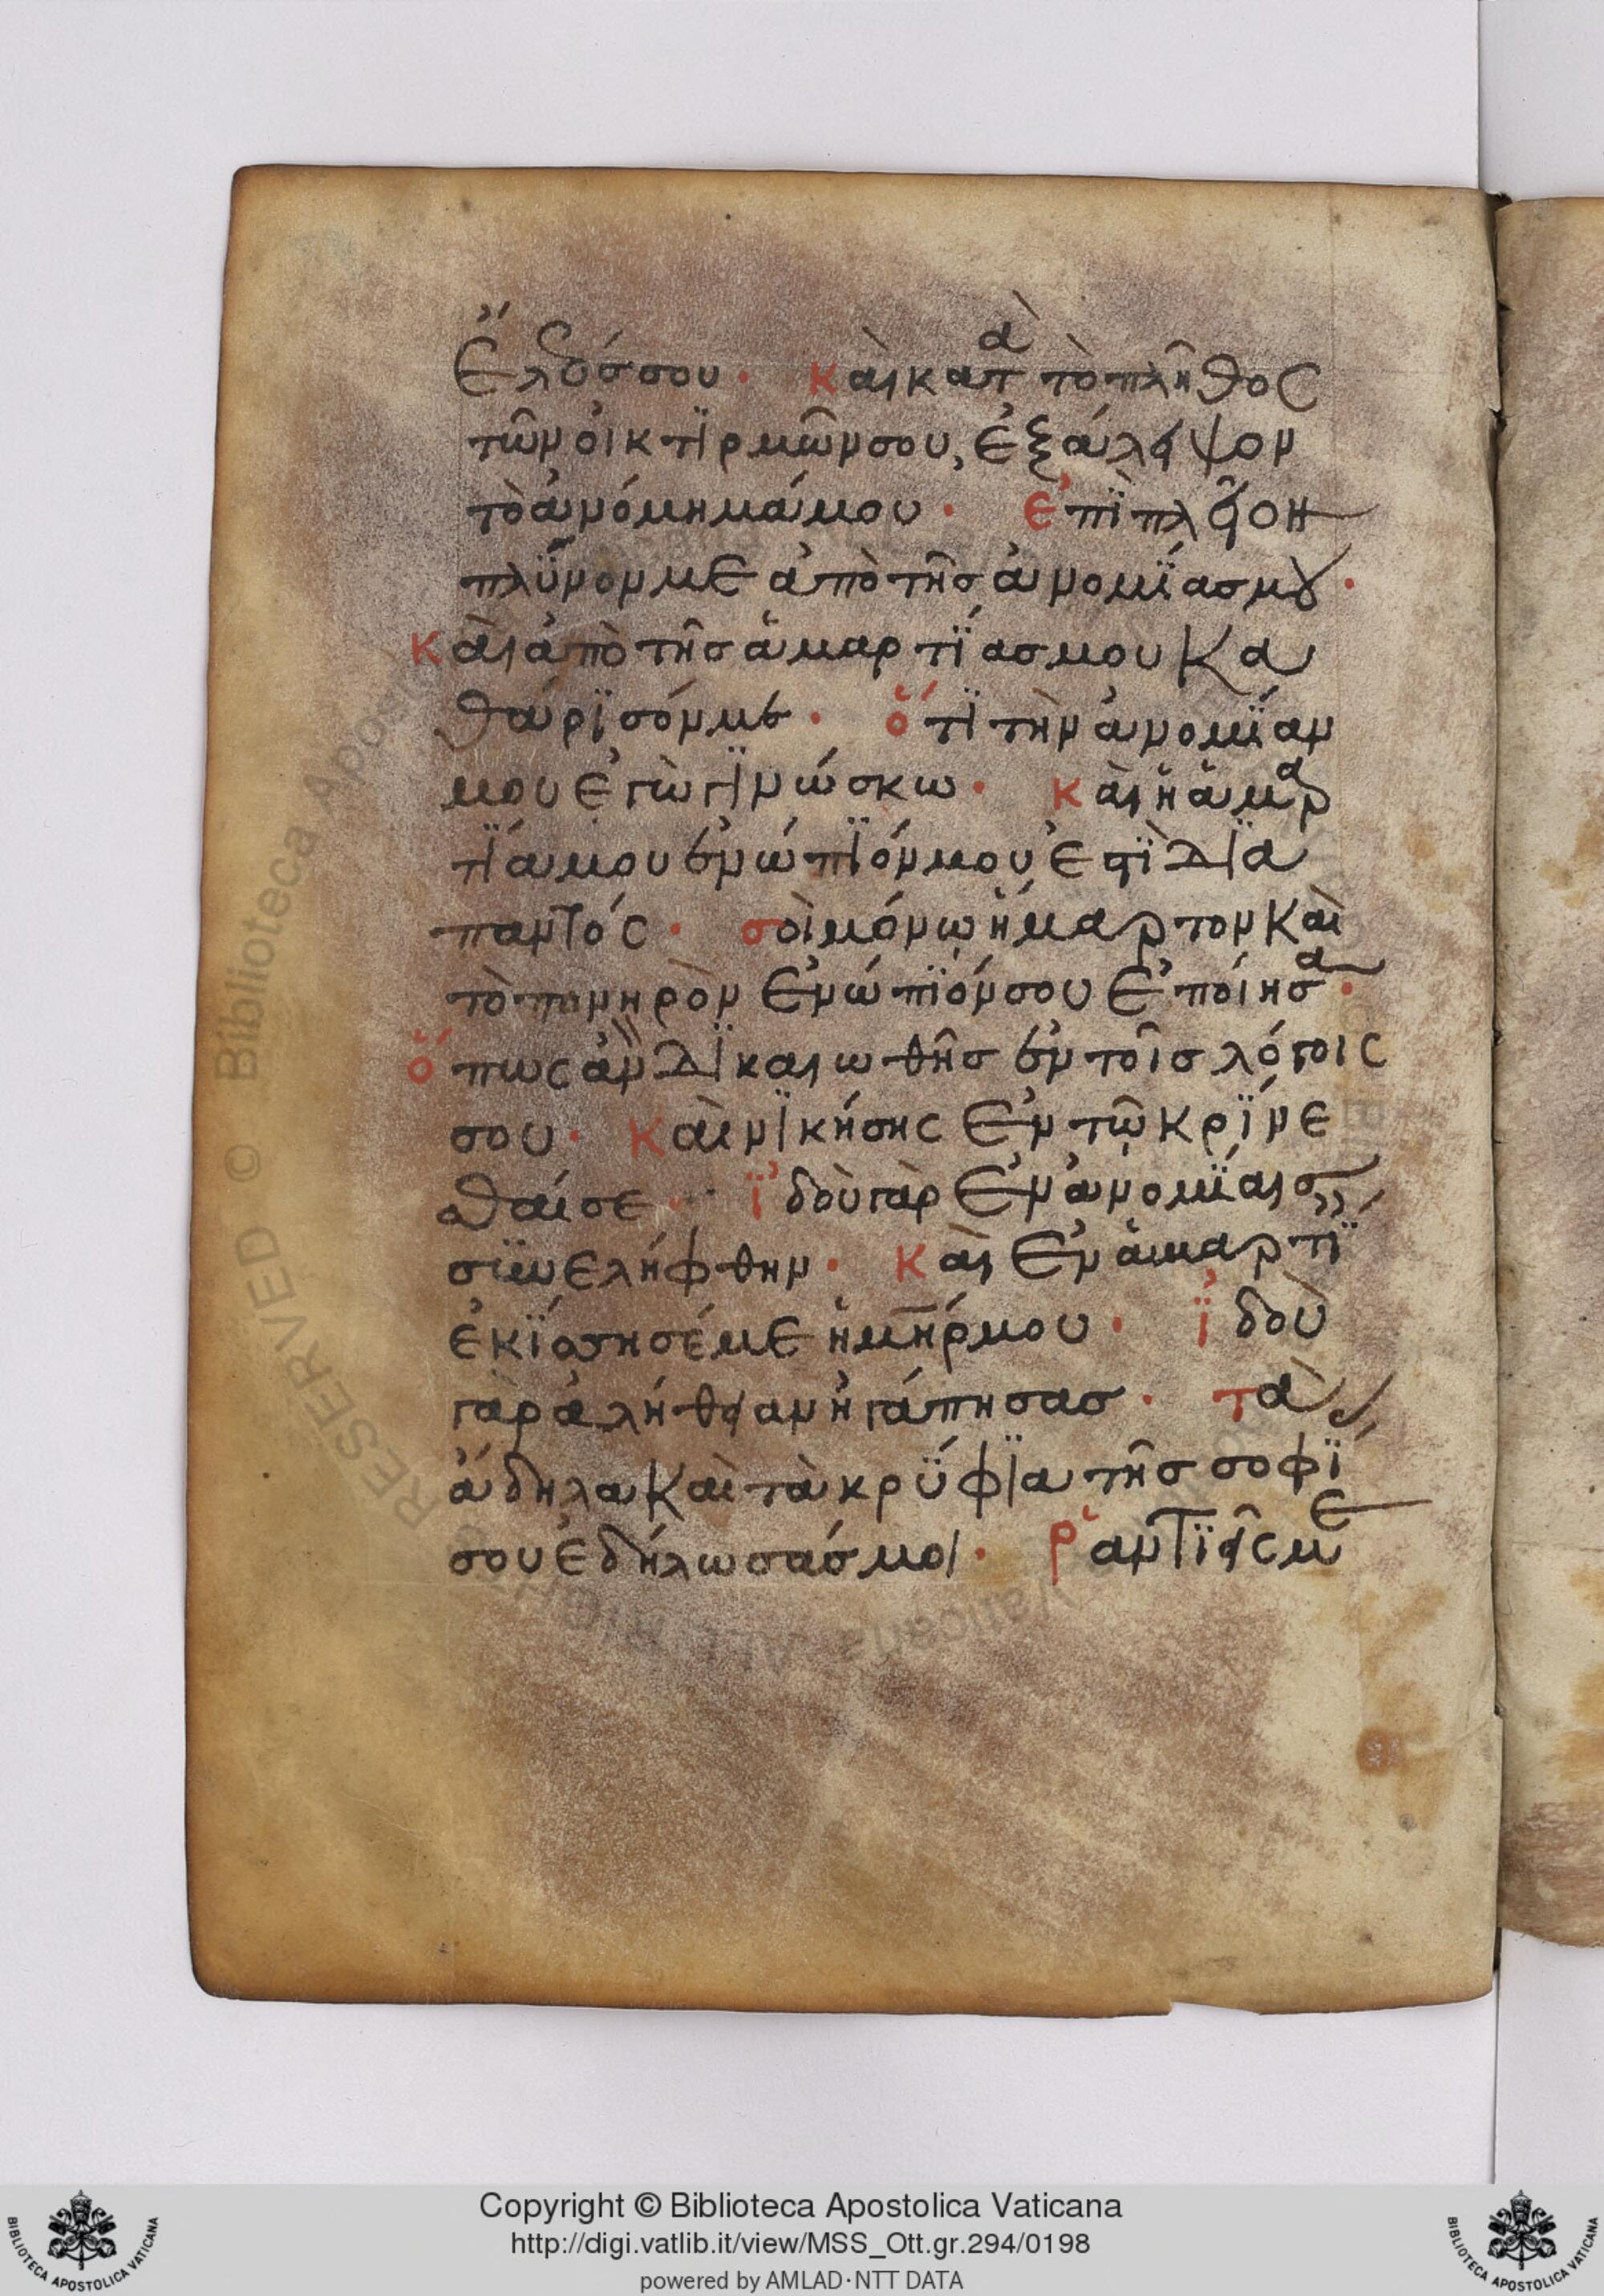 ἔλεόσσου· καὶ κατὰ τὸ πλῆθος
τῶν οἰκτϊρμῶν σου, ἐξάλειψον
τὸ ἀνόμημά μου· ἐπῒ πλεῖον
πλῦνόν με ἀπὸ τῆς ἀνομΐας μου·
καὶ ἀπὸ τῆς ἁμαρτΐας μου κα
θάρϊσόν με· ὅτϊ τὴν ἀνομΐαν
μου ἐγὼ γϊνώσκω· καὶ ἡ ἁμαρ
τΐα μου ἐνώπϊόν μου ἐστὶ δϊα
παντός· σοὶ μόνῳ ἥμαρτον καὶ
τὸ πονηρὸν ἐνώπϊόν σου ἐποίησα·
ὅπως ἂν δϊκαιωθῆς ἐν τοῖς λόγοις
σου· καὶ νϊκήσης ἐν τῷ κρΐνε
σθαί σε· ἰδοὺ γὰρ ἐν ἀνομΐαις
συνελήφθην· καὶ ἐν ἁμαρτΐαις
ἐκΐσσησέ με ἡ μήρ μου· ἰδοὺ
γὰρ ἀλήθειαν ἠγάπησας· τὰ
ἄδηλα καὶ τὰ κρΰφϊα τῆς σοφΐας
σου ἐδήλωσάς μοι· ῥαντϊεῖς με
Copyright © Biblioteca Apostolica Vaticana
http://digi.vatlib.it/view/MSS_Ott.gr.294/0198
powered by AMLAD·NTT DATA
BIBLIOTECA APOSTOLICA VATICANA
BIBLIOTECA APOSTOLICA VATICANA